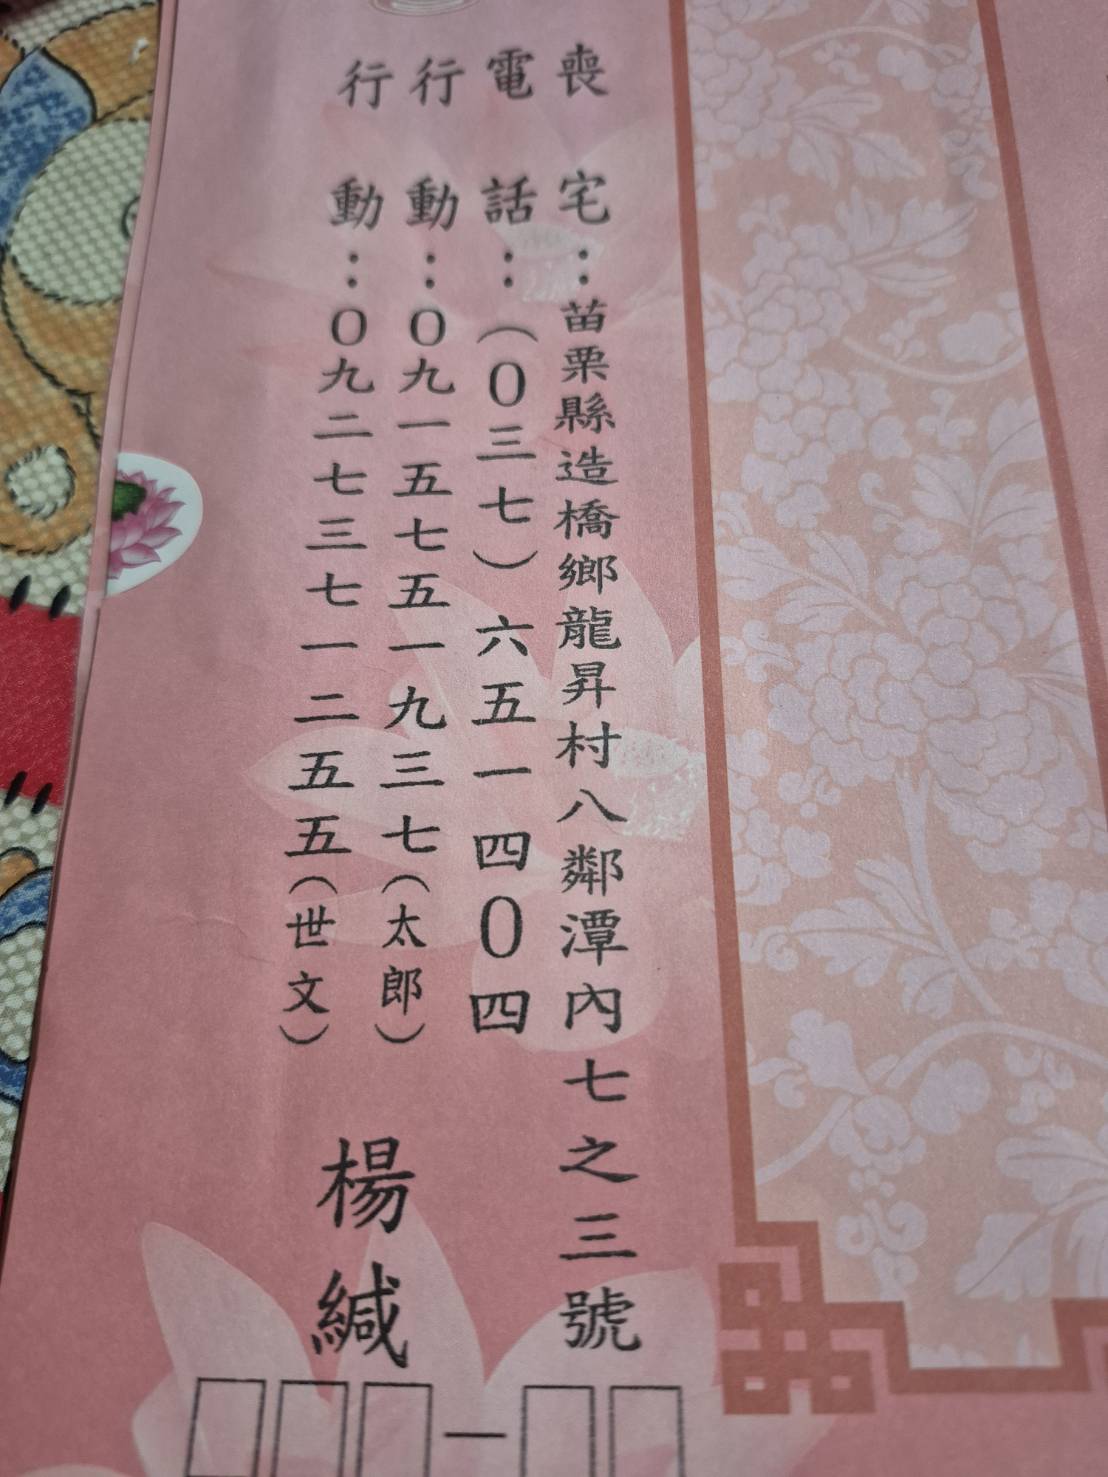 喪宅：苗栗縣造橋鄉龍昇村八鄰潭內七之三號
電話：（０三七）六五一四０四
行動：０九一五七五一九三七（太郎）
行動：０九二七三七一二五五（世文）
楊緘